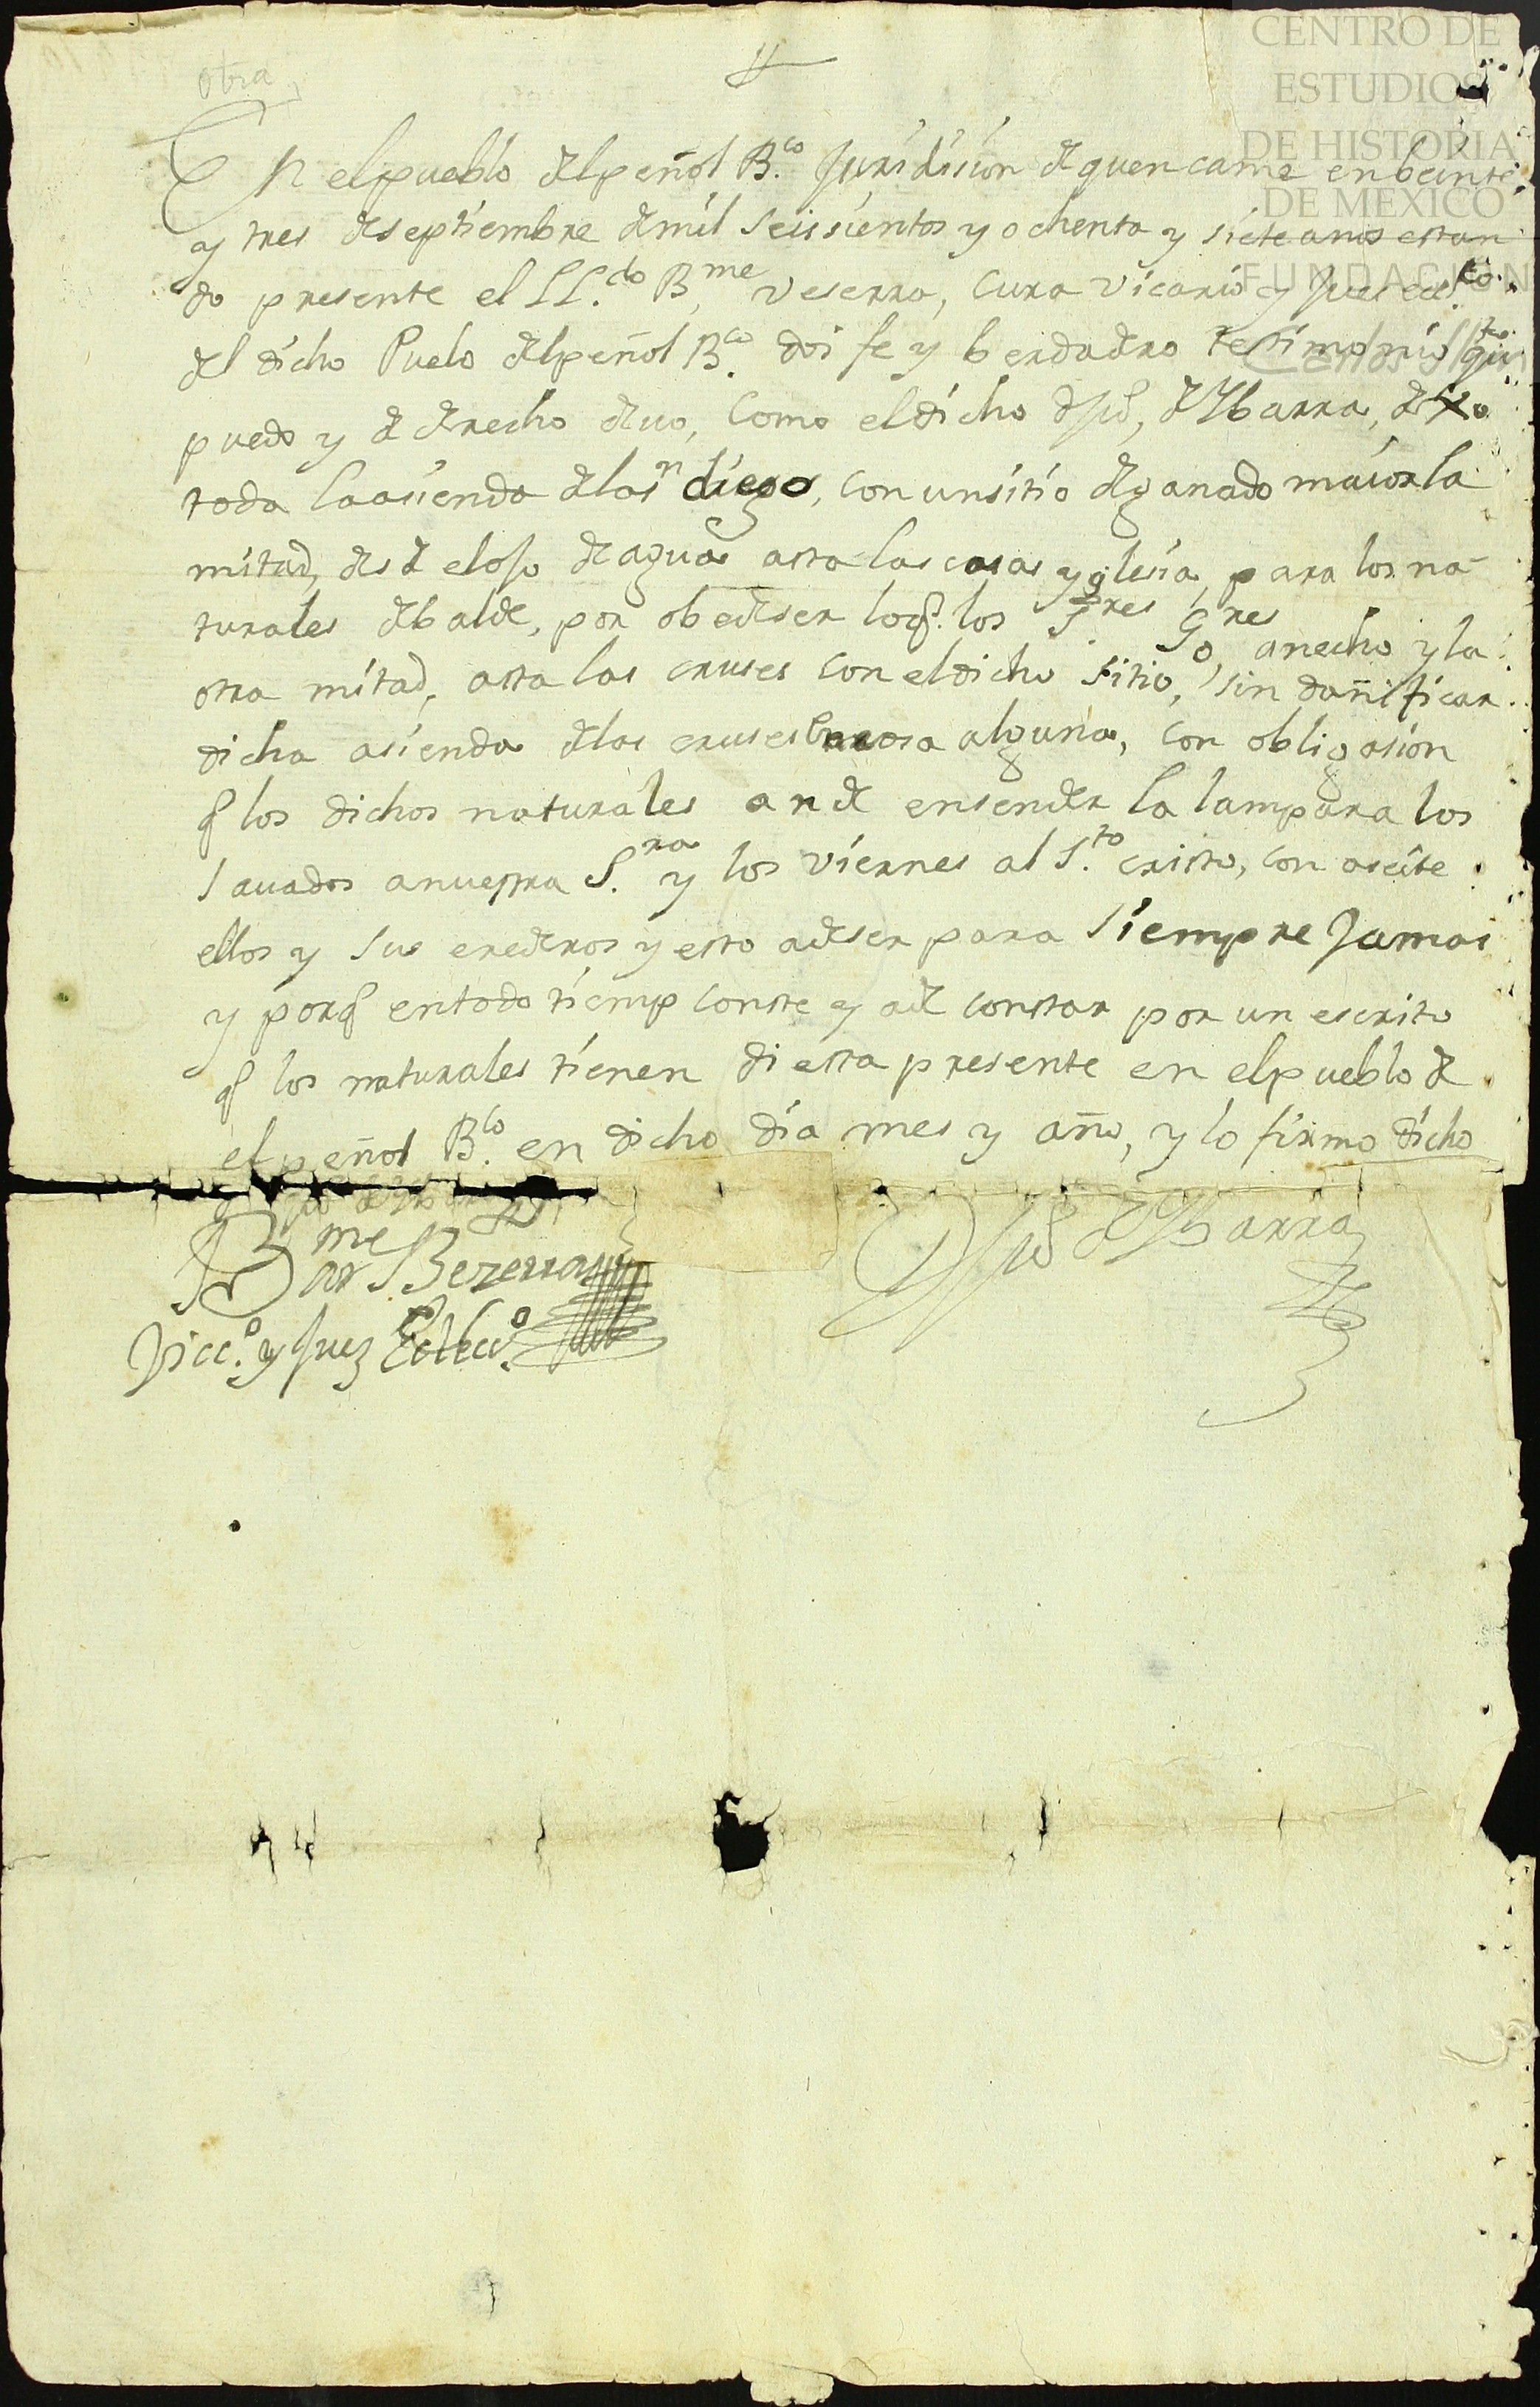 CENTRO DE
ESTUDIOS
DE HISTORIA
DE MEXICO
FUNDACION
Carlos Slim
otra
En elpueblo delpeñol B.co Juridision de quencame en beinte
y tres de septiembre de mil seissientos y ochenta y siete anos estan
do presente el LL.do B.me Veserra, Cura Vicario y Jues
del dicho Puelo delpeñol B.co doi fe y berdadero testimonio
puedo y de derecho devo, Como eldicho de Ybarra,
toda laasienda de san diego, con unsitio de ganado maior la
mitad, desde elojo de agua asta las casas yglesia, para los na-
turales debalde, por obedeser loq. los S.res G.res
o, anecho y la
otra mitad, asta las cruses con eldicho sitio, sin dañificar
dicha asienda de las cruses cosa alguna, con obligasion
q los dichos naturales an de ensender la lampara los
savados anuestra S.ra y los viernes al S.to cristo, con aseite
ellos y sus erederos y esto adeser para siempre Jamas
y porq entodo tiemp conste y ade constar por un escrito
q los naturales tienen di esta presente en elpueblo de
el peñol B.co en dicho dia mes y año, y lo firmo dicho
de Ybarra
Bar.me Bezerra
Vicc.o y Juez Ecleco.